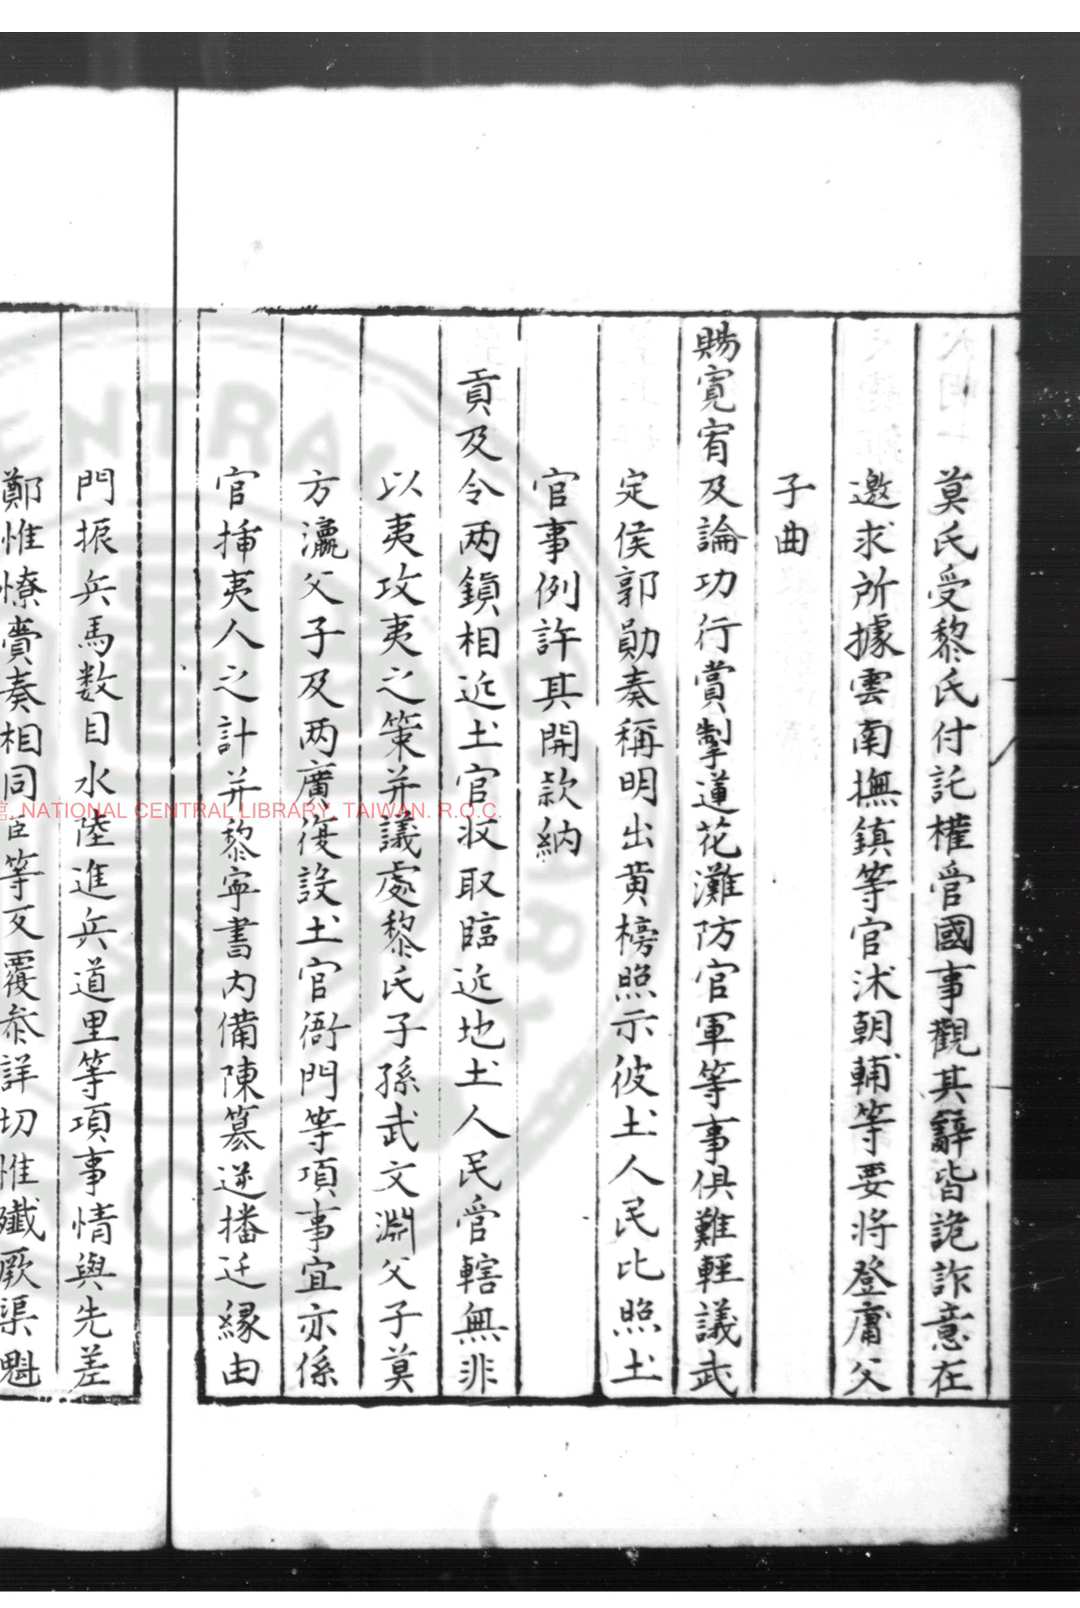 莫氏受黎氏付託權管國事觀其辭皆詭詐意在
邀求所據雲南撫鎮等官沐朝輔等要將登庸父
子曲
賜寛宥及論功行賞掣蓮花灘防官軍等事俱難輕議武
定侯郭勛奏稱明出黄榜照示彼土人民比照土
官事例許其開款納
貢及令两鎮相近土官収取臨近地土人民管轄無非
以夷攻夷之策并議處黎氏子孫武文淵父子莫
方瀛父子及两廣復設土官衙門等項事宜亦係
官捕夷人之計并黎寧書内備陳篡逆播迁縁由
門振兵馬数目水陸進兵道里等項事情與先差
鄭惟憭賫奏相同臣等反覆叅詳切惟殲厥渠魁
館 NATIONAL CENTRAL LIBRARY, TAIWAN. R.O.C.